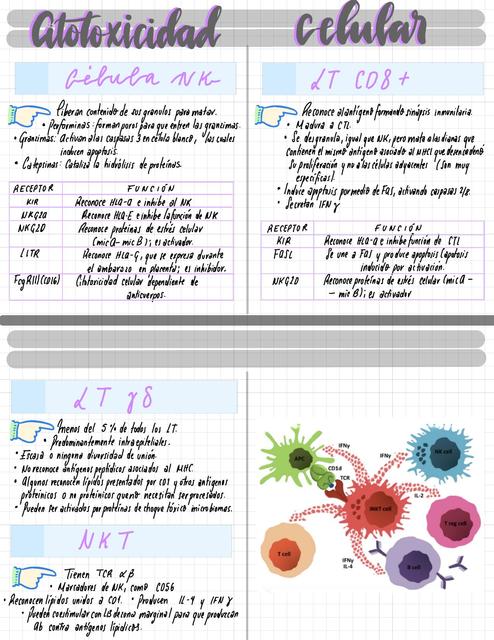 Citotoxicidad celular
Célula NK
Liberan contenido de sus granulos para matar.
• Performinas: forman poros para que entren las granzimas.
• Granzimas: Activan alas caspasas 3 en célula blanco, las cuales
inducen apoptosis.
• Catepsinas: Cataliza la hidrólisis de proteínas.
RECEPTOR FUNCIÓN
KIR Reconoce HLA-a e inhibe al NK
NKG2a Reconoce HLA-E e inhibe la función de NK
NKG2D Reconoce proteínas de estrés celular
(mica- mic B); es activador.
LITR Reconoce HLA-G, que se expresa durante
el embarazo en placenta; es inhibidor.
FcgRIII(CD16) Citotoxicidad celular dependiente de
anticuerpos.
LT CD8+
Reconoce al antígeno formando sinapsis inmunitaria.
• Madura a CTL
• Se desgranula, igual que NK, pero mata alas dianas que
contienen el mismo antígeno asociado al MHCI que desencadenó
su proliferación y no a las células adyacentes (son muy
específicas).
• Induce apoptosis por medio de Fas, activando caspasas 2/8.
• Secretan IFN γ
RECEPTOR FUNCIÓN
KIR Reconoce HLA-a e inhibe función de CTL
FASL Se une a FAS y produce apoptosis (apoptosis
inducida por activación.
NKG2D Reconoce proteínas de estrés celular (mica-
- mic B); es activador
LT γδ
Menos del 5% de todos los LT.
• Predominantemente intraepiteliales.
• Escasa o ninguna diversidad de unión.
• No reconoce antígenos peptídicos asociados al MHC.
• Algunos reconocen lípidos presentados por CD1 y otros antígenos
proteínicos o no proteínicos que no necesitan ser procesados.
• Pueden ser activados por proteínas de choque tóxico microbianas.
NKT
Tienen TCR αβ
• Marcadores de NK, como CD56
• Reconocen lípidos unidos a CD1. • Producen IL-4 y IFN γ
• Pueden coestimular con LB de zona marginal para que produzcan
Ab contra antígenos lipídicos.
APC
CD1d
TCR
IFNγ
IFNγ
NK cell
iNKT cell
IL-2
T reg cell
T cell
IFNγ
IL-4
B cell